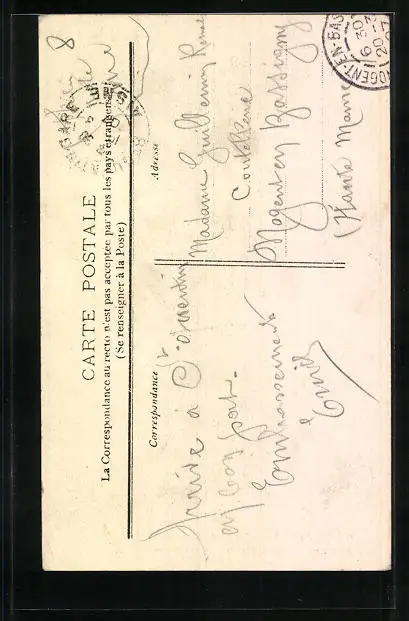 CARTE POSTALE
La Correspondance au recto n'est pas acceptée par tous les pays étrangers
(Se renseigner à la Poste)
Correspondance
Adresse
Arrivé à St Quentin
en bon port.
Embrassements
Emile
Madame Guillemin Renée
Coutellerie
Nogent en Bassigny
(Haute Marne
NOGENT-EN-BAS
6 30
20
8